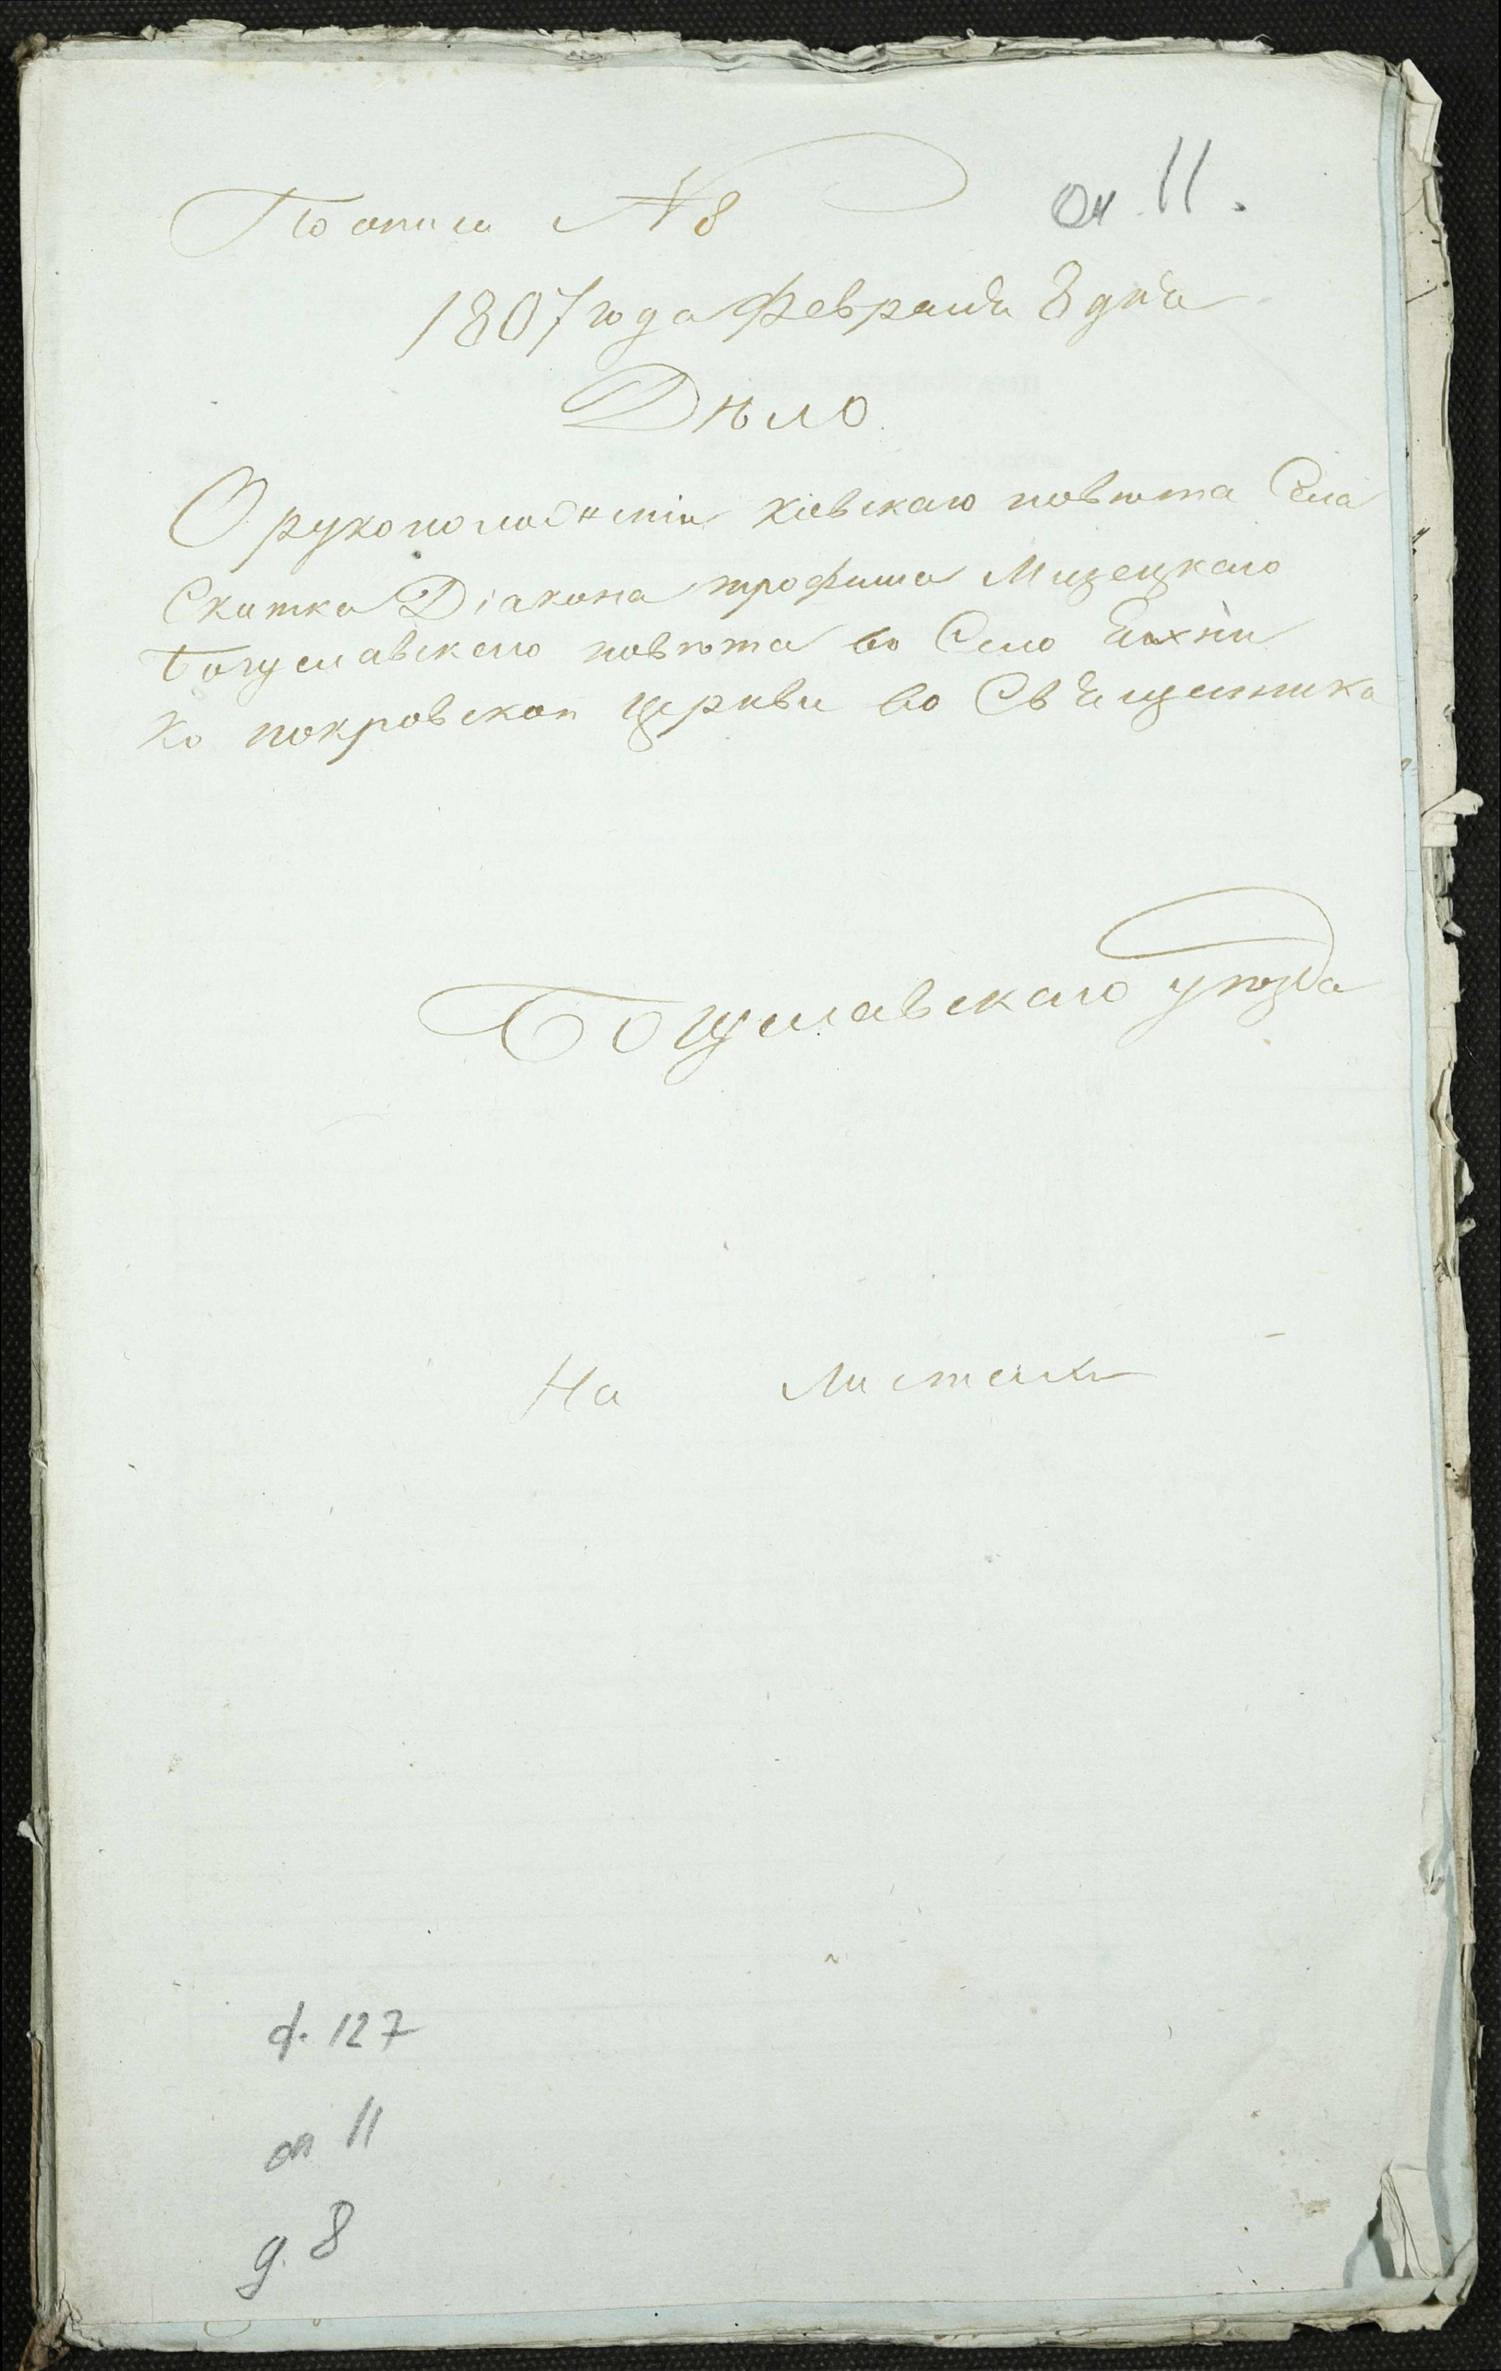 По описи №8
оп. 11.
1807 года февраля 8 дня
Дѣло
О рукоположенiи кiевскаго повѣта Села
Скитка Дiакона трофима Мизецкаго
Богуславскаго повѣта во Село
ко покровской церкви во Священника
Богуславскаго уѣзда
На листахъ
ф. 127
оп 11
д. 8